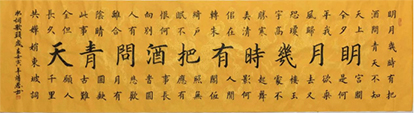 明月幾時有把酒問青天
明月幾時有把
酒問青天不知
天上宮闕
今夕是何
年我欲乘
風歸去又
恐瓊樓玉
宇高處不
勝寒起舞
弄清影何
似在人間
轉朱閣低
綺戶照無
眠不應有
恨何事長
向別時圓
人有悲歡
離合月有
陰晴圓缺
此事古難
全但願人
長久千里
共嬋娟東坡詞
水調歌頭